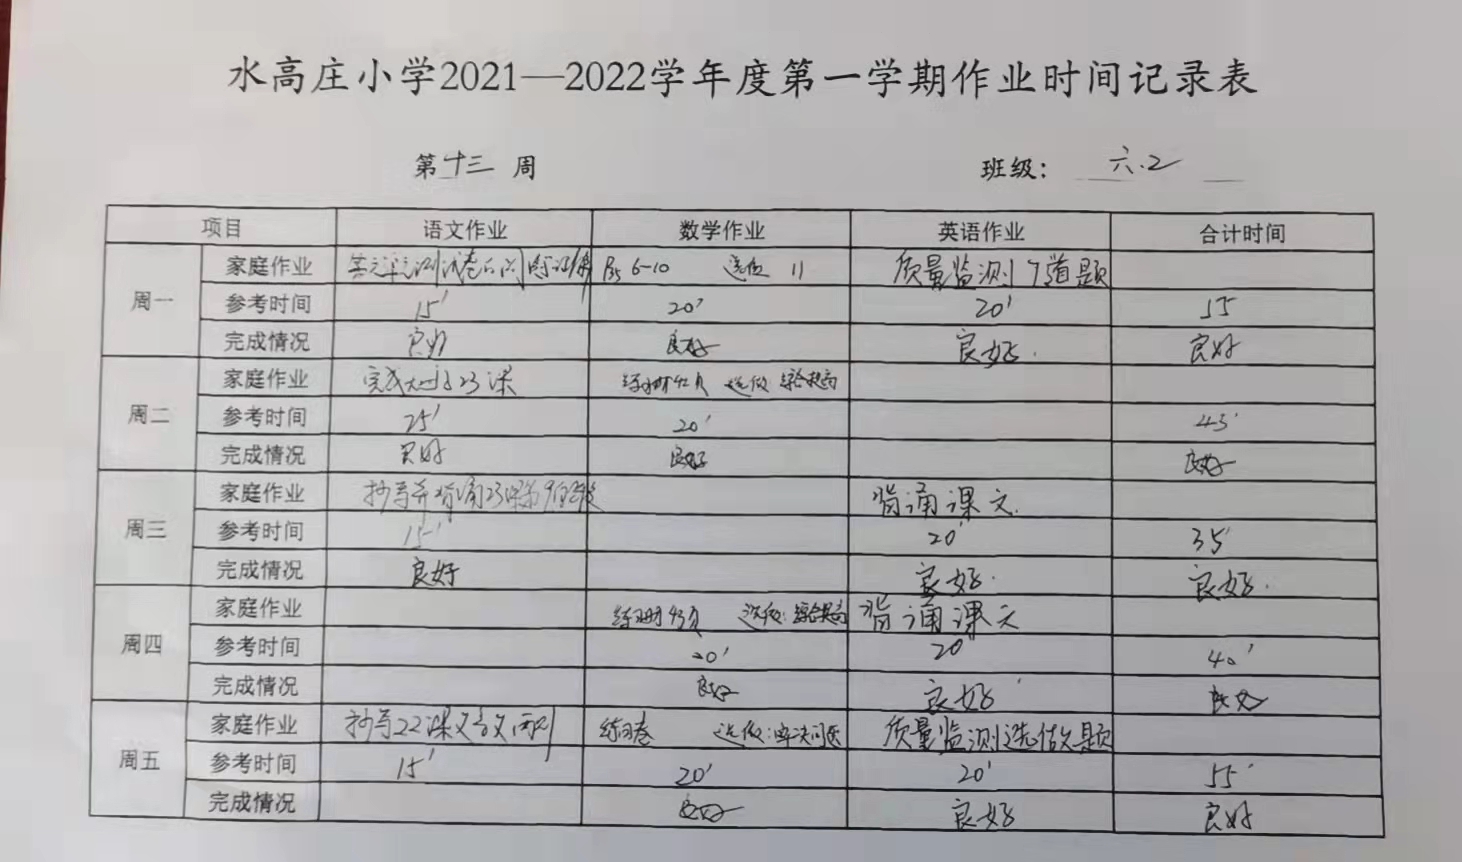 水高庄小学2021—2022学年度第一学期作业时间记录表
第十三周 班级：六.2
项目 语文作业 数学作业 英语作业 合计时间
周一
家庭作业 6-10 选做 11 质量监测7道题
参考时间 15' 20' 20' 55
完成情况 良好 良好 良好. 良好
周二
家庭作业 完成 23课 练习册42页 选做：综合提高
参考时间 25' 20' 45'
完成情况 良好 良好 良好
周三
家庭作业 抄写并背诵23课第 自然段 背诵课文.
参考时间 15' 20' 35'
完成情况 良好 良好. 良好.
周四
家庭作业 练习册43页 选做：综合提高 背诵课文
参考时间 20' 20' 40'
完成情况 良好 良好 良好
周五
家庭作业 抄写22课 练习卷 选做：解决问题 质量监测选做题
参考时间 15' 20' 20' 55'
完成情况 良好 良好 良好